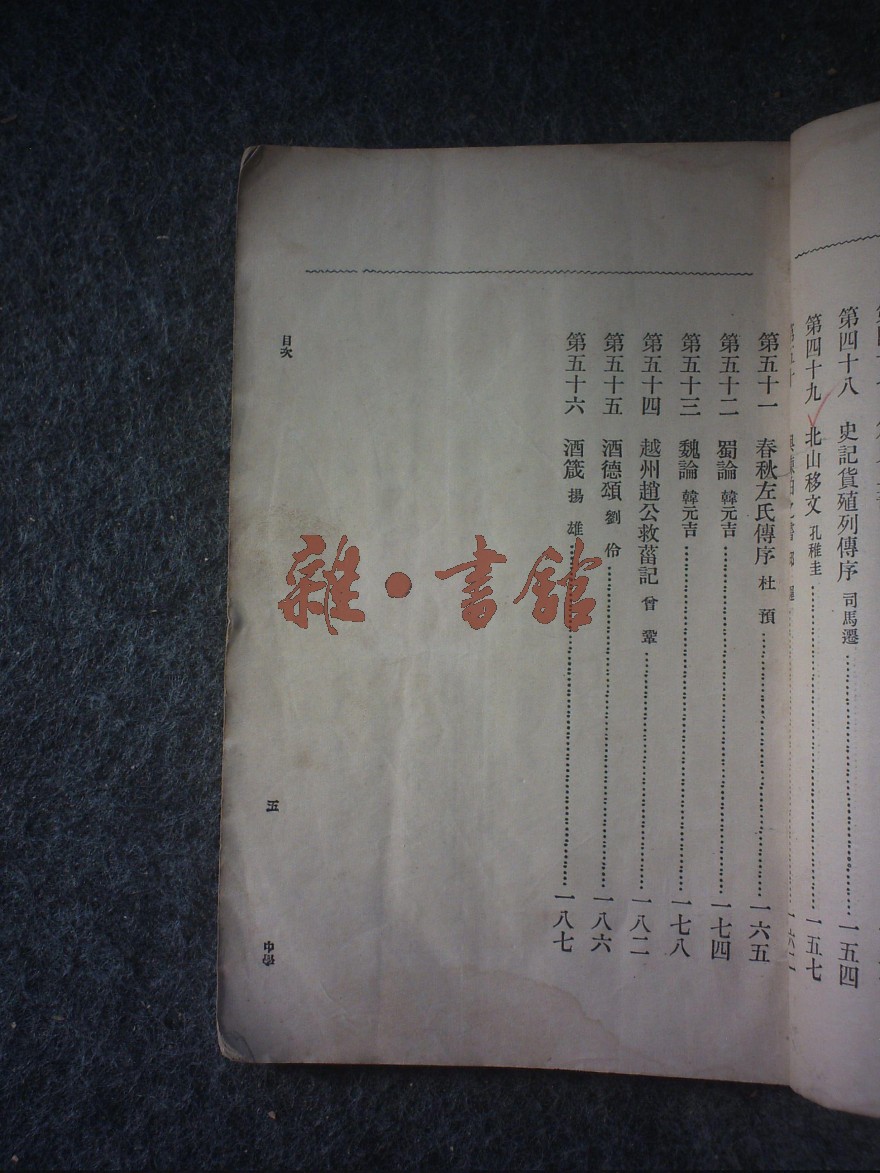 第四十八 史記貨殖列傳序 司馬遷 一五四
第四十九 北山移文 孔稚圭 一五七
第五十一 春秋左氏傳序 杜預 一六五
第五十二 蜀論 韓元吉 一七四
第五十三 魏論 韓元吉 一七八
第五十四 越州趙公救菑記 曾鞏 一八二
第五十五 酒德頌 劉伶 一八六
第五十六 酒箴 揚雄 一八七
目次
五
中學
雜·書館